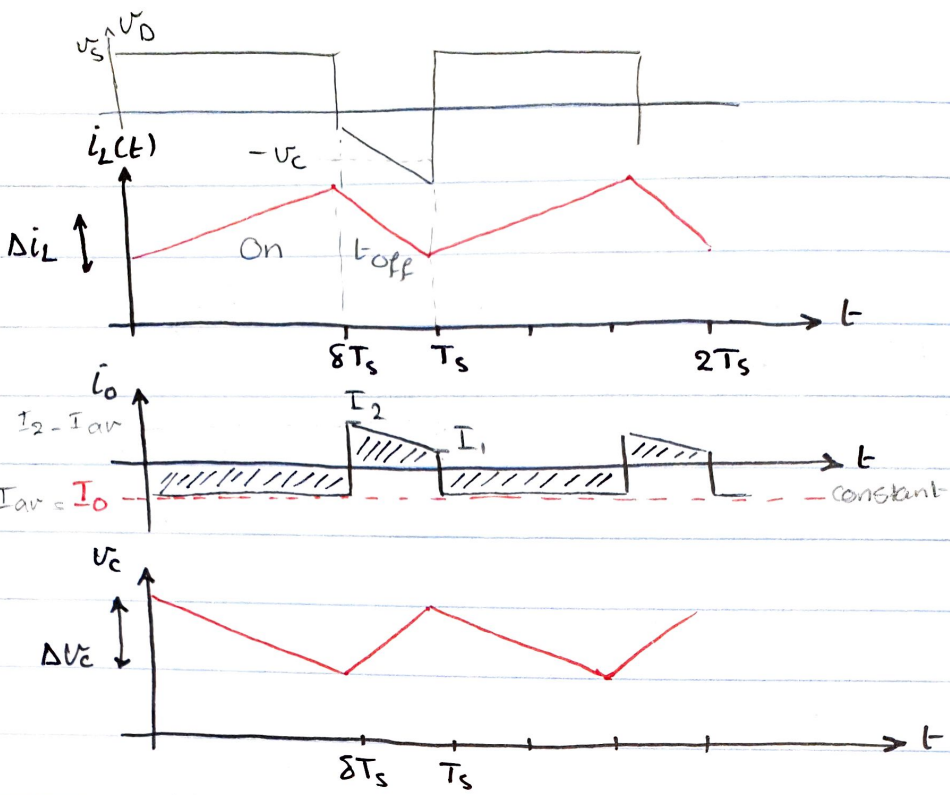 v_S v_D
i_L(t)
-v_c
Δi_L
On t_off
t
δT_s T_s 2T_s
i_o
I_2
I_2 - I_av
I_1
t
I_av = I_o
constant
v_c
Δv_c
t
δT_s T_s